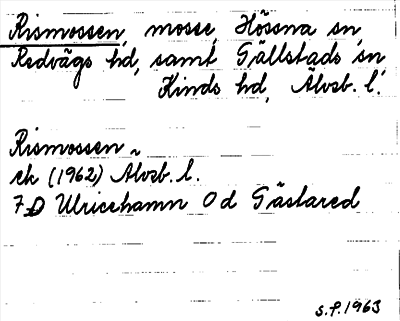 Rismossen, mosse, Hössna sn,
Redvägs hd, samt Gällstads sn,
Kinds hd, Älvsb. l.
Rismossen ~
ek (1962) Älvsb. l.
7 D Ulricehamn Od Gästared
S.P. 1963